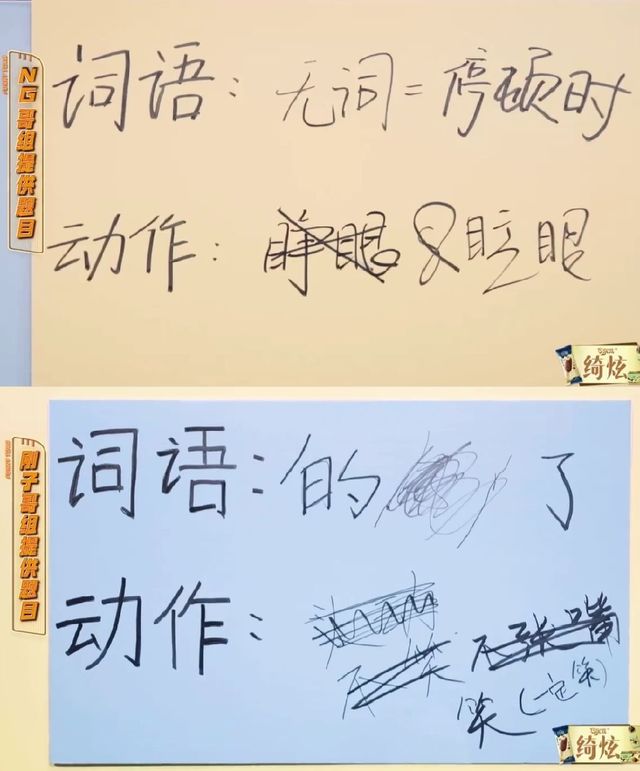 NG哥组提供题目
词语：无词=停顿时
动作：睁眼 &眨眼
绮炫
刚子哥组提供题目
词语：的 了
动作：
不笑 不张嘴
笑(一定笑)
绮炫